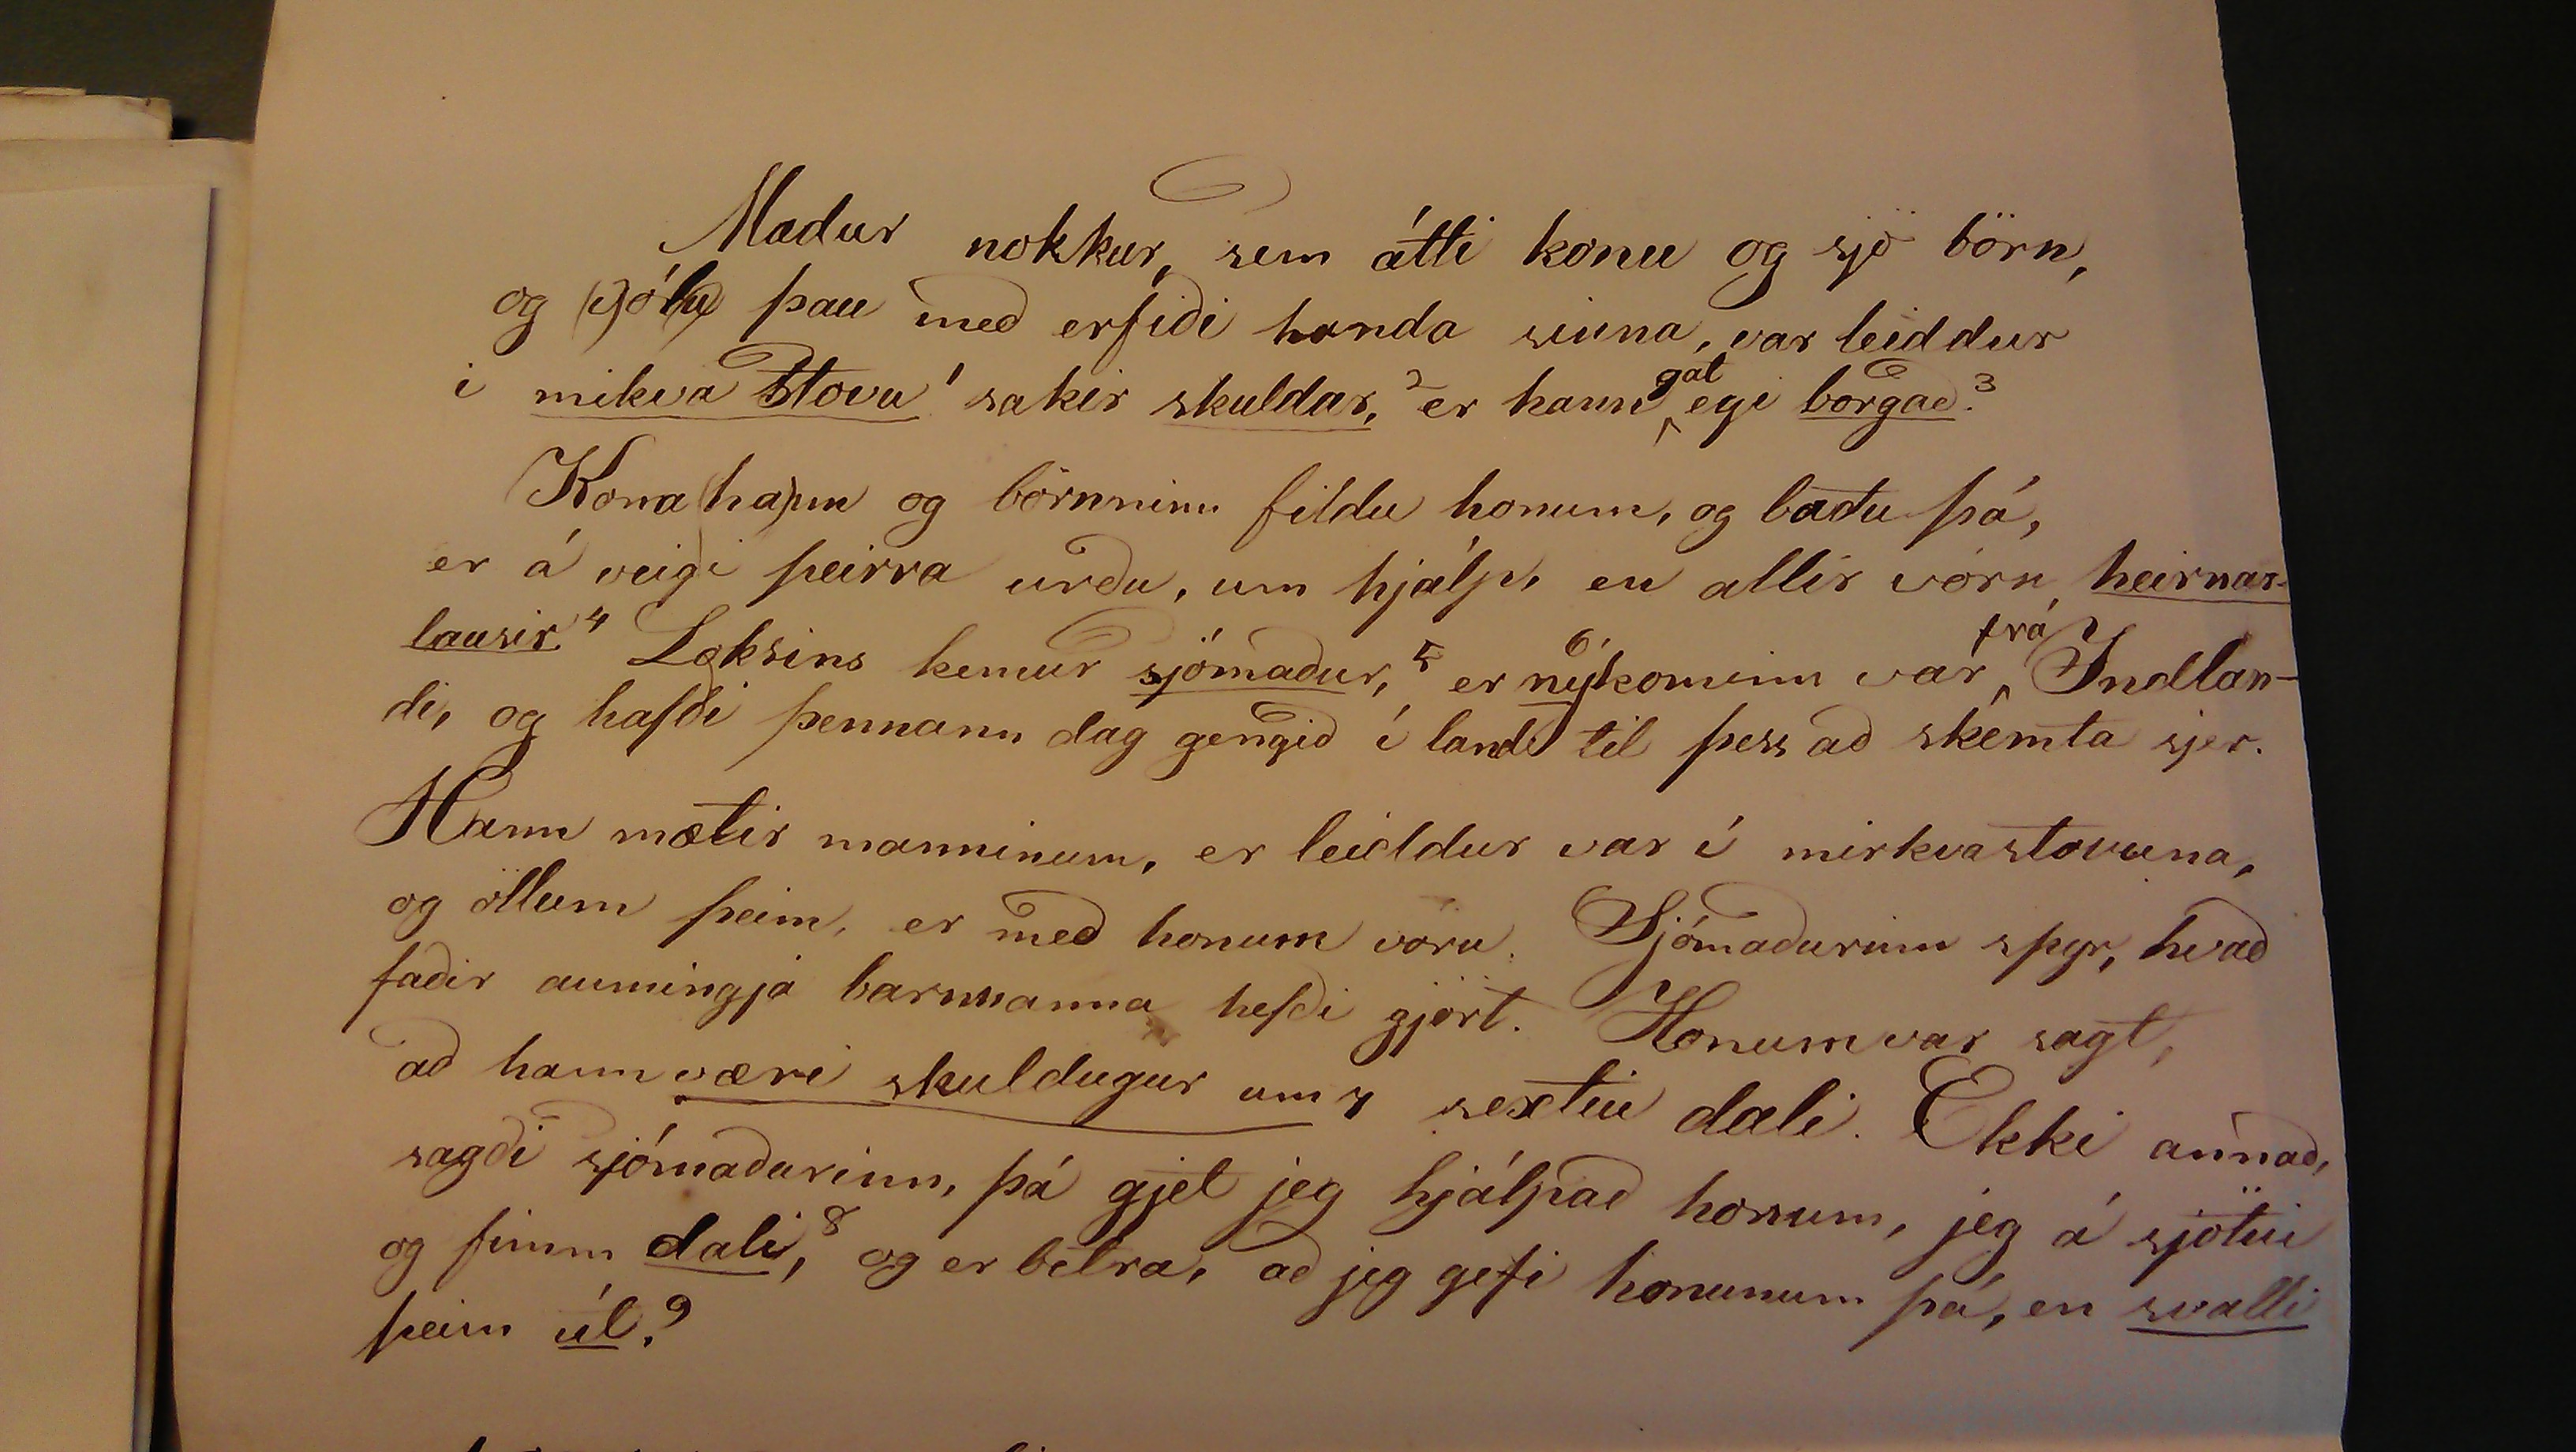 Madur nokkur, sem átti konu og sjö börn,
og (j)ól(u) þau með erfiði handa sinna, var leiddur
i mikva stovu¹ sakir skuldar,² er hann gat egi borgað.³
Kona ha)nn og börnninn fildu honum, og baðu þá,
er á veigi þeirra urðu, um hjálp, en allir vórn heirnar-
lausir.⁴ Loksins kemur sjómaður,⁵ er nýkominn⁶ var frá Indlan-
di, og hafði þennann dag gengið í land til þess að skemta sjer.
Hann mætir manninum, er leiddur var í mirkvastovuna,
og öllum þeim, er með honum voru. Sjómaðurinn spyr, hvað
faðir aumingja barnnanna hefði gjört. Honum var sagt,
að hann væri skuldugur um⁷ sextíu dali. Ekki annað,
sagði sjómaðurinn, þá gjet jeg hjálpað honum, jeg á sjötíu
og fimm dali,⁸ og er betra, að jeg gefi honunum þá, en svalli
þeim út.⁹